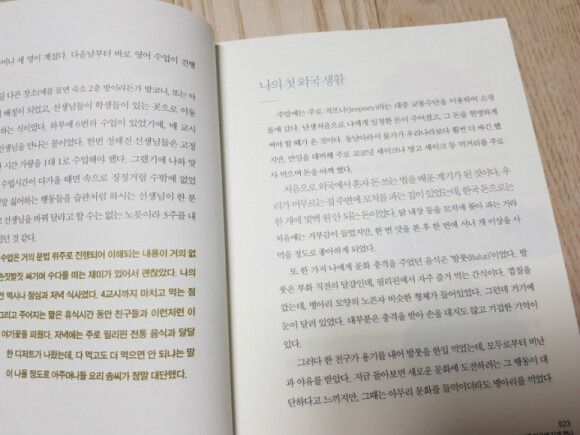 머니 세 명이 계셨다. 다음날부터 바로 영어 수업이 진행
일 다른 장소(예를 들면 숙소 2층 방이라든가 발코니, 또는 아
배정이 되었고, 선생님들이 학생들이 있는 곳으로 이동
하는 식이었다. 하루에 6번의 수업이 있었기에, 매 교시
선생님을 만나는 꼴이었다. 한번 정해진 선생님들은 고정
시간 가량을 1대 1로 수업해야 했다. 그랬기에 나와 맞
수업시간이 다가올 때면 속으로 징징거릴 수밖에 없었
말 싫어하는 행동들을 습관처럼 하시는 선생님이 한 분
선생님을 바꿔 달라고 할 수는 없는 노릇이라 3주를 내
었던 것 같다.
수업은 거의 문법 위주로 진행되어 이해되는 내용이 거의 없
손짓발짓 써가며 수다를 떠는 재미가 있어서 괜찮았다. 나의
건 역시나 점심과 저녁 식사였다. 4교시까지 마치고 먹는 점
그리고 주어지는 짧은 휴식시간 동안 친구들과 이런저런 이
야기꽃을 피웠다. 저녁에는 주로 필리핀 전통 음식과 달달
한 디저트가 나왔는데, 다 먹고도 더 먹으면 안 되냐는 말
이 나올 정도로 아주머니들 요리 솜씨가 정말 대단했다.
나의 첫 외국 생활
주말에는 주로 지프니(Jeepney)라는 대중 교통수단을 이용하여 쇼핑
몰에 갔다. 난생처음으로 나에게 일정한 돈이 주어졌고, 그 돈을 현명하게
써야 할 때가 온 것이다. 동남아라서 물가가 우리나라보다 훨씬 더 싸긴 했
지만, 만일을 대비해 주로 코코넛 셰이크나 망고 셰이크 등 먹거리를 주로
사 먹으며 돈을 아껴 썼다.
처음으로 외국에서 혼자 돈 쓰는 법을 배운 계기가 된 것이다. 우
리가 머무르는 집 주변에 꼬치를 파는 집이 있었는데, 한국 돈으로는
한 개에 몇백 원 안 되는 돈이었다. 닭 내장 등을 꼬치에 꽂아 파는 거라
처음에는 거부감이 들었지만, 한 번 맛을 본 후 한 번에 서너 개 이상을 사
먹을 정도로 좋아하게 되었다.
또 한 가지 나에게 문화 충격을 주었던 음식은 '발룻(Balut)'이었다. 발
룻은 부화 직전의 달걀인데, 필리핀에서 자주 즐겨 먹는 간식이다. 껍질을
깠는데, 병아리 모양의 노른자 비슷한 형체가 들어있었다. 그런데 거기에
눈이 달려 있었다. 대부분은 충격을 받아 손을 대지도 않고 기겁한 기억이
있다.
그러다 한 친구가 용기를 내어 발룻을 한입 먹었는데, 모두로부터 비난
과 야유를 받았다. 지금 돌아보면 새로운 문화에 도전하려는 그 행동이 대
단하다고 느끼지만, 그때는 아무리 문화를 들먹이더라도 병아리를 먹었다
023